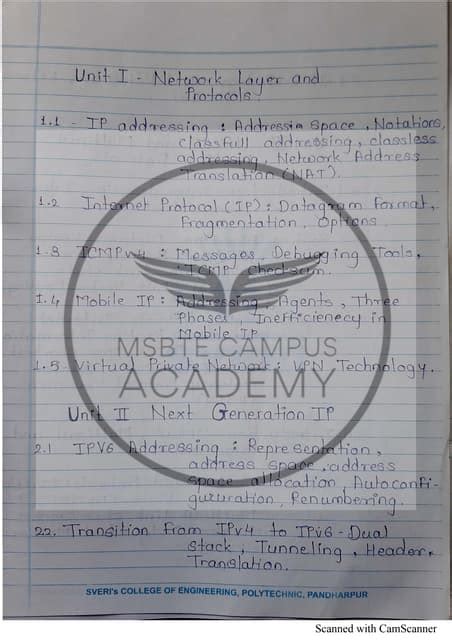 Unit I - Network Layer and
Protocols
1.1 - IP addressing : Addressin space, Notations,
classfull addressing, classless
addressing, Network Address
Translation (NAT).
1.2 Internet Protocol (IP) : Datagram format,
Fragmentation, Options
1.3 ICMPv4 : Messages, Debugging Tools,
ICMP checksum.
1.4 Mobile IP : Addressing, Agents, Three
Phases, Inefficienecy in
Mobile IP
MSBTE CAMPUS
1.5 Virtual Private Network : VPN Technology.
ACADEMY
Unit II Next Generation IP
2.1 IPV6 Addressing : Representation,
address space, address
space allocation, Autoconfi-
gururation, Renumbering.
22. Transition from IPv4 to IPv6 - Dual
Stack, Tunneling, Header,
Translation.
SVERI's COLLEGE OF ENGINEERING, POLYTECHNIC, PANDHARPUR
Scanned with CamScanner